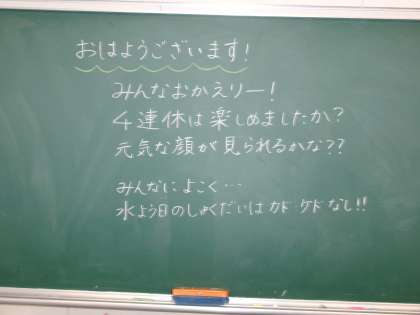 おはようございます!
みんなおかえりー!
4連休は楽しめましたか?
元気な顔が見られるかな??
みんなによこく…
水よう日のしゅくだいはカド・ケドなし!!